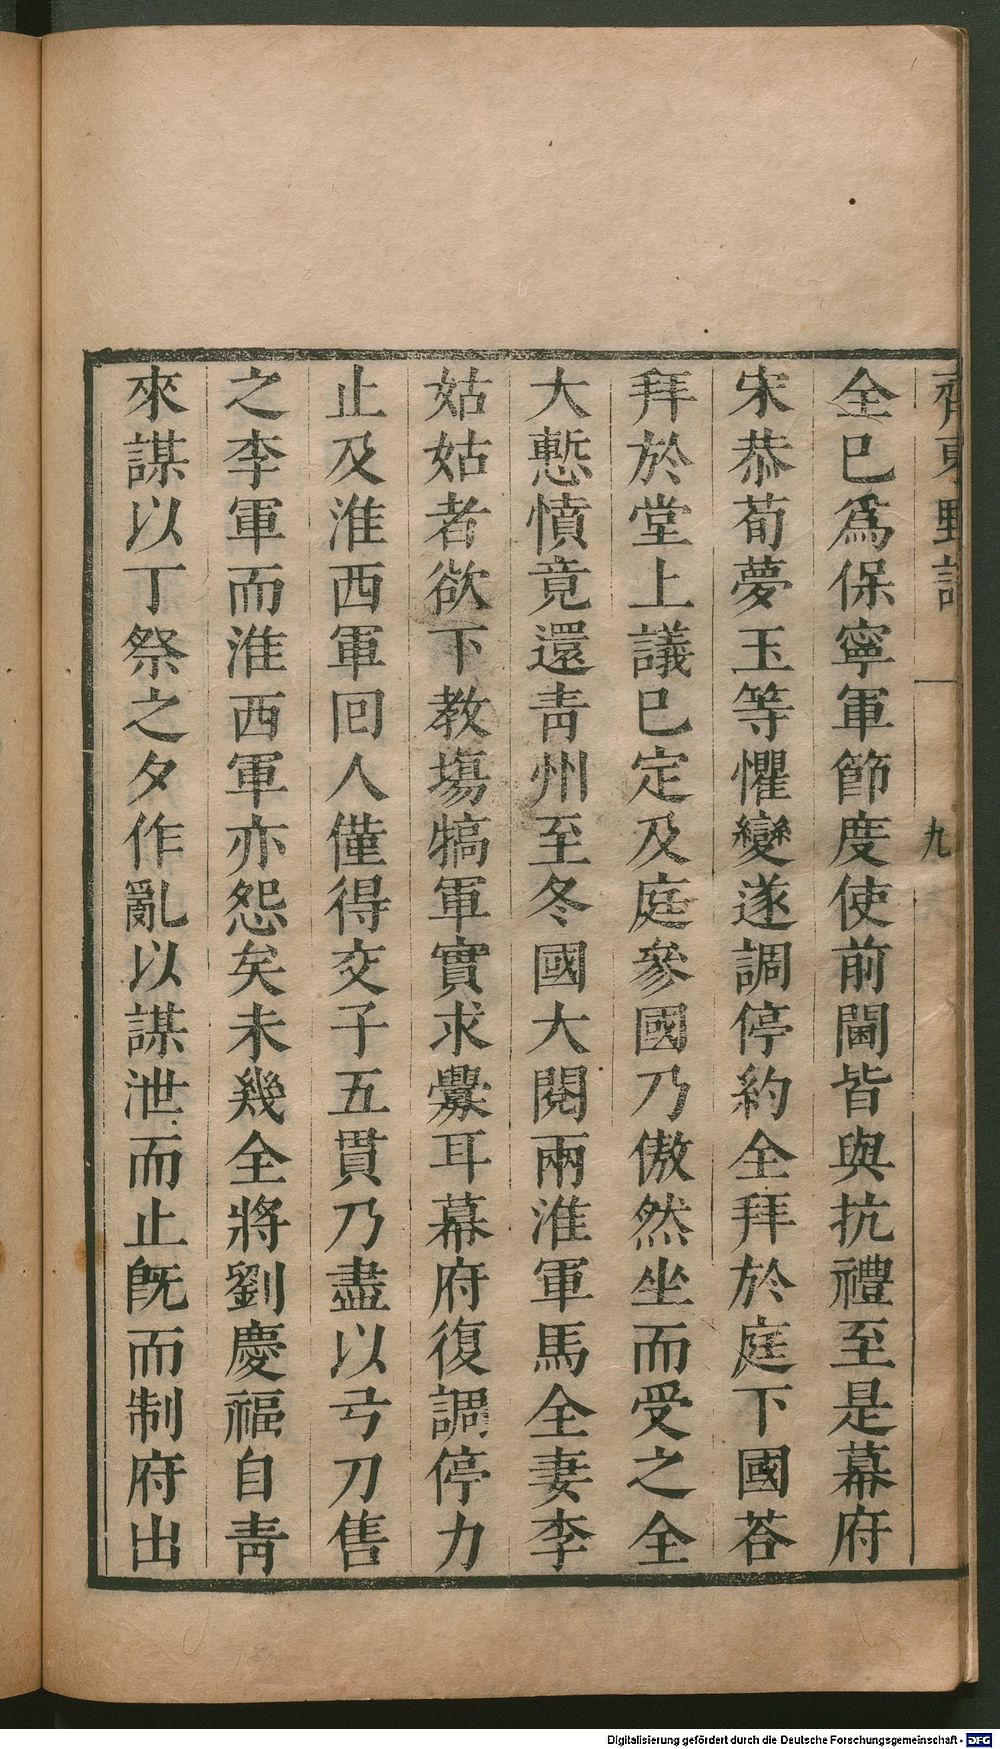 齊東野語
九
全已爲保寧軍節度使前閫皆與抗禮至是幕府
宋恭荀夢玉等懼變遂調停約全拜於庭下國荅
拜於堂上議已定及庭參國乃傲然坐而受之全
大慙憤竟還靑州至冬國大閱兩淮軍馬全妻李
姑姑者欲下教塲犒軍實求釁耳幕府復調停力
止及淮西軍回人僅得交子五貫乃盡以弓刀售
之李軍而淮西軍亦怨矣未幾全將劉慶福自靑
來謀以丁祭之夕作亂以謀泄而止旣而制府出
Digitalisierung gefördert durch die Deutsche Forschungsgemeinschaft - DFG